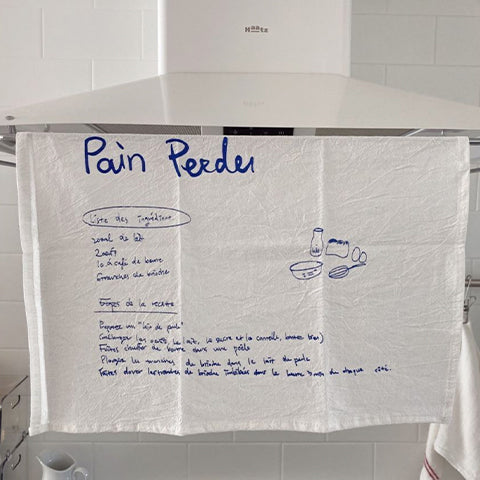 Haatz
Pain Perdu
Liste des ingrédients
200ml de lait
2 oeufs
1c à café de beurre
4 tranches de brioche
Étapes de la recette
Préparez un "lait de poule"
(mélanger les oeufs, le lait, le sucre et la cannelle, battez bien)
Faites chauffer du beurre dans une poêle
Plongez les tranches de brioche dans le lait de poule
Faites dorer les tranches de brioche imbibées dans le beurre 3 min de chaque côté.